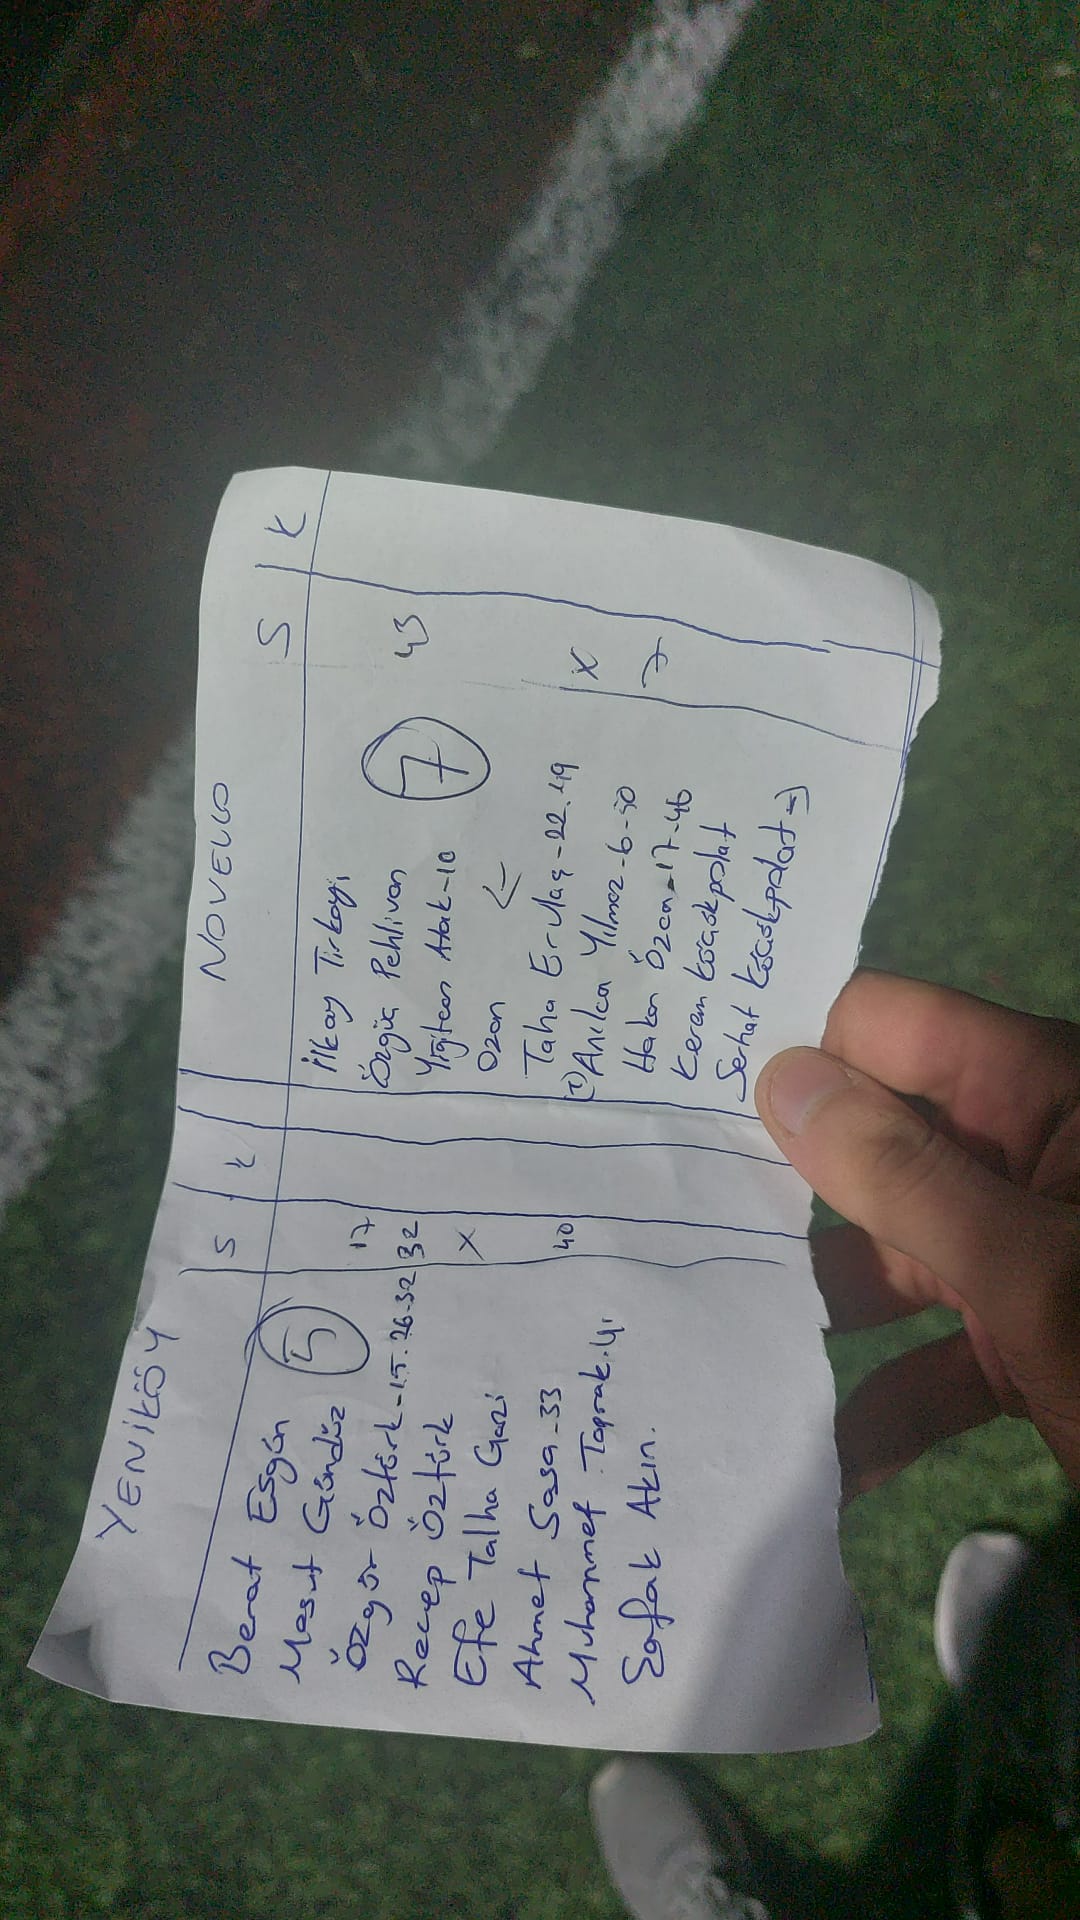 YENİKÖY
S K
Berat Esgün
Mesut Gündüz 5 17
Özgür Öztürk-15.26.32 32
Recep Öztürk X
Efe Talha Gazi
Ahmet Sasa-33 40
Muhammet Toprak.41
Şafak AKIN.
NOVELLO
S K
İlkay Tirkayi
Özgür Pehlivan 7 43
Yiğitcan Atak-10
Ozan
Taha Erulaş-22.49
Anılca Yılmaz-6-50 X
Hakan Özcan-17-46 7
Kerem Kocaakpolat
Serhat Kocaakpolat